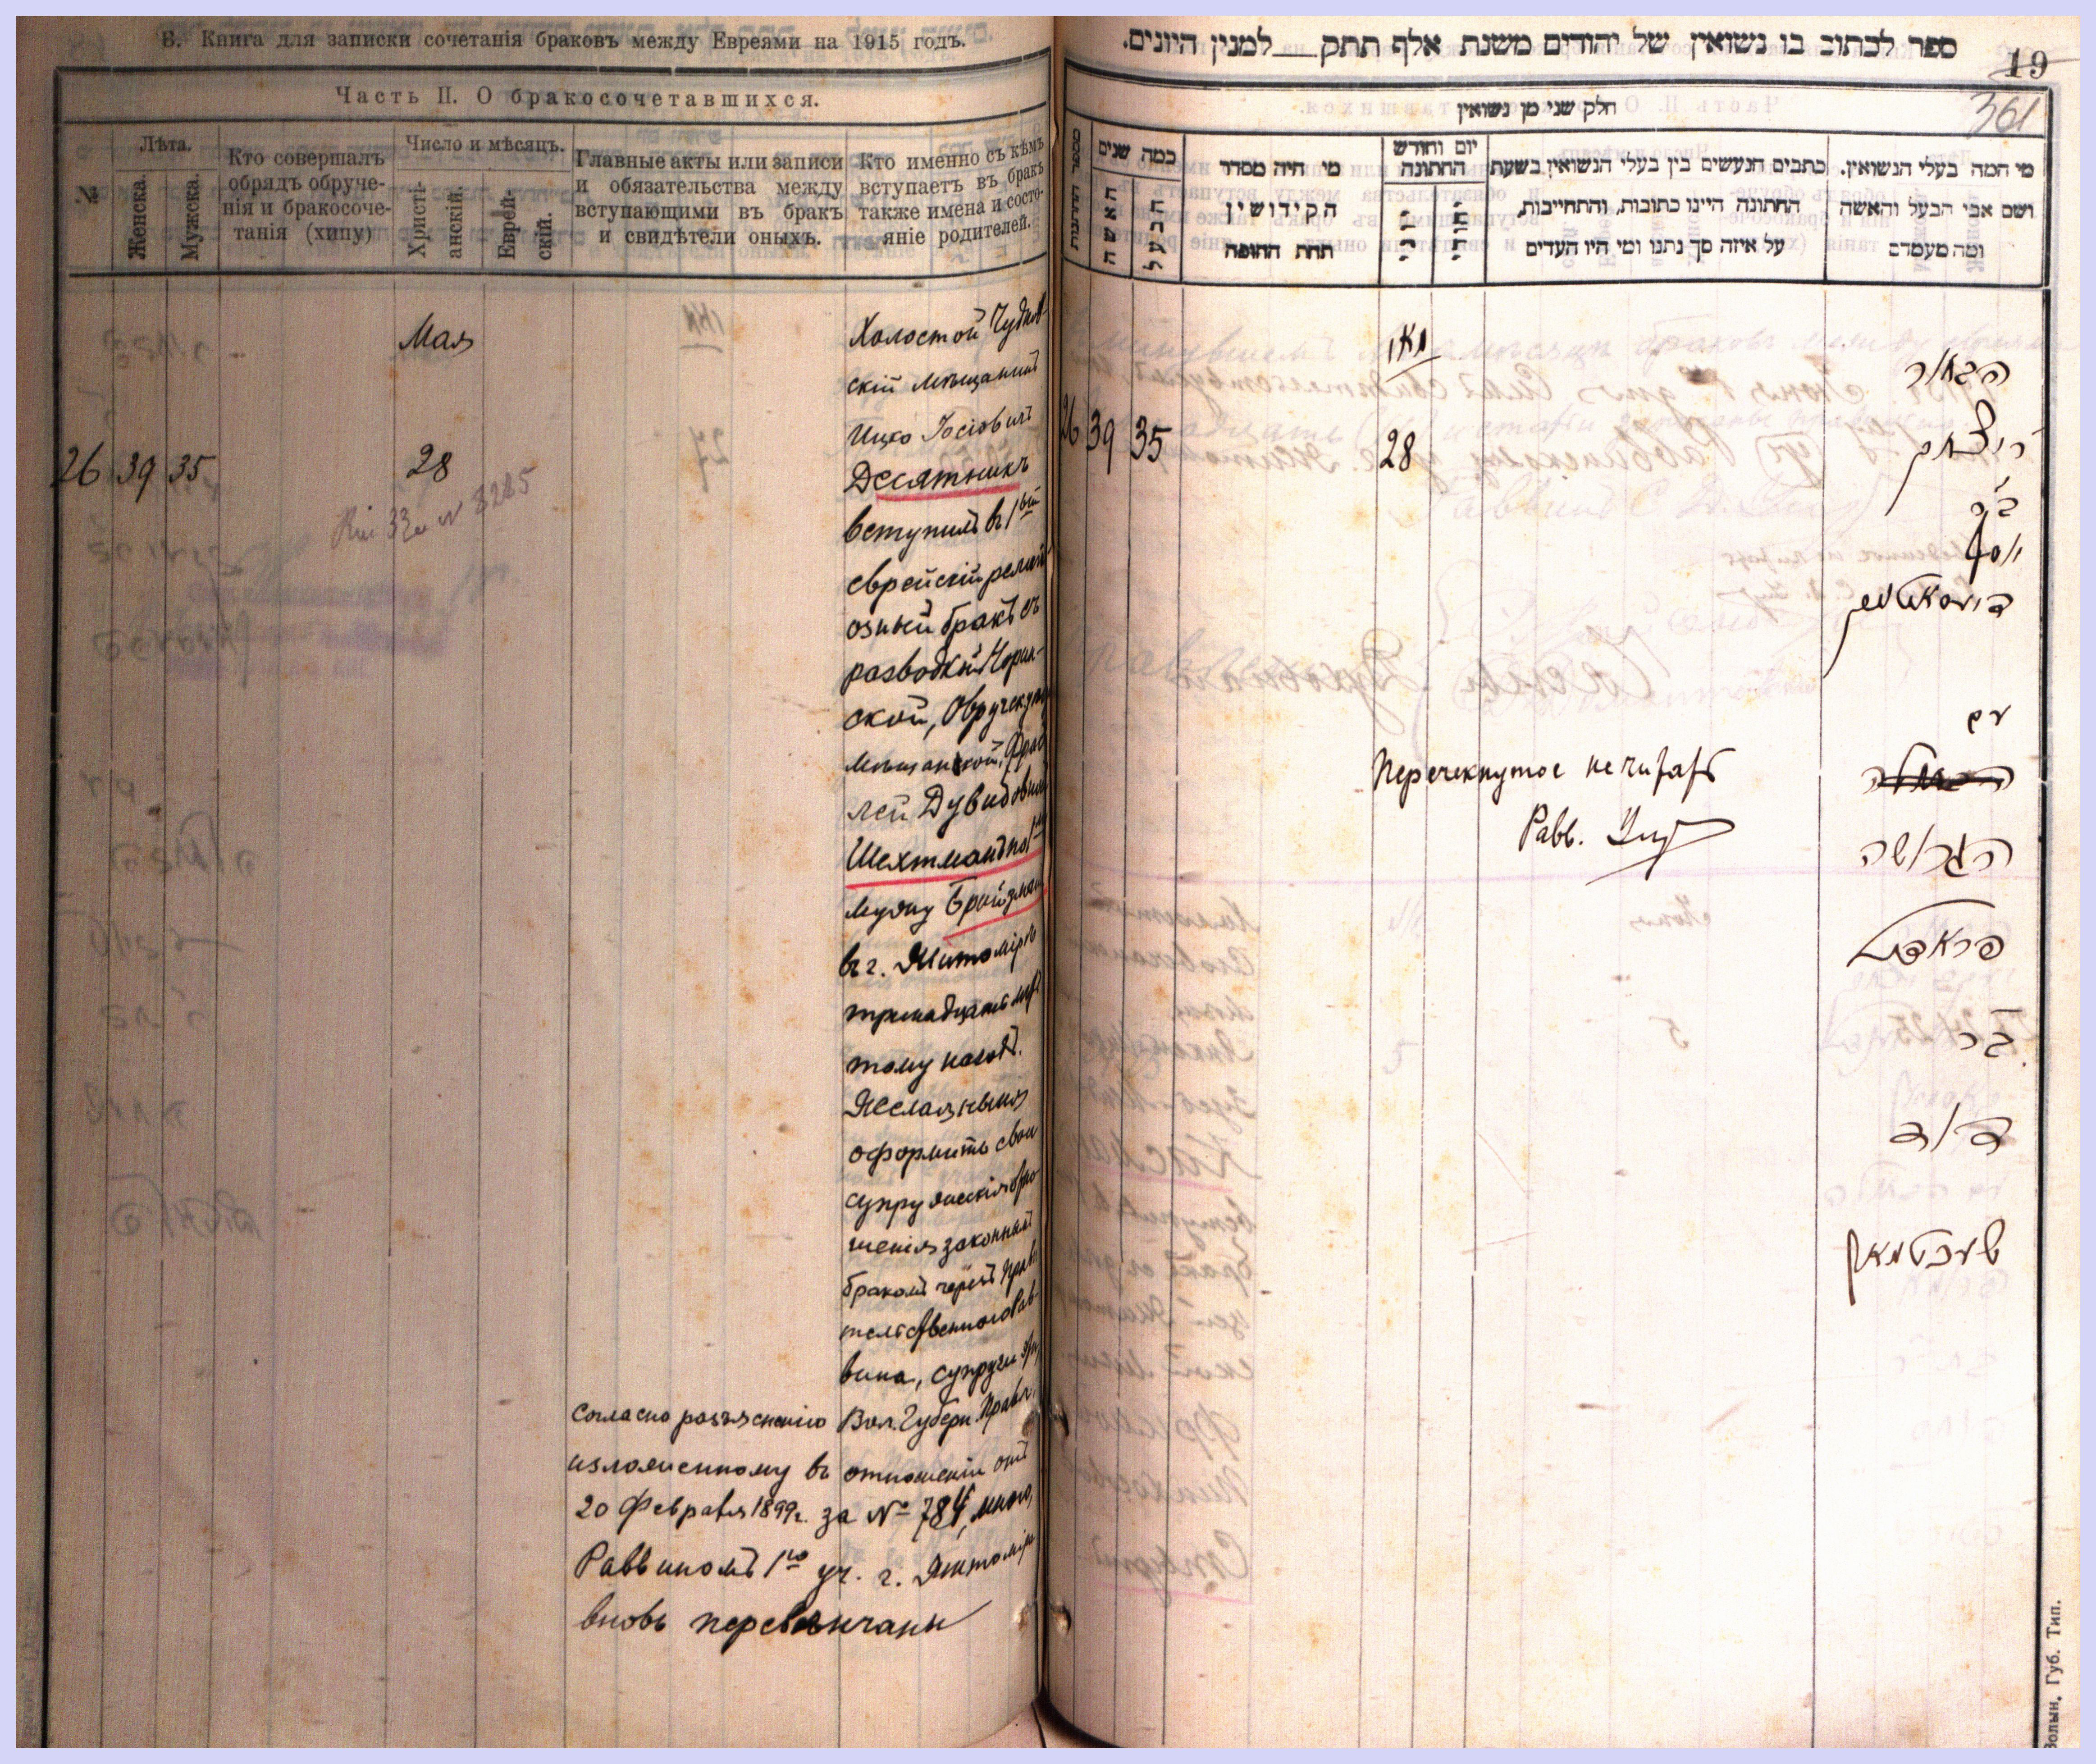 Б. Книга для записки сочетанія браковъ между Евреями на 1915 годъ.
Часть II. О бракосочетавшихся.
№
Лѣта.
Женска.
Мужска.
Кто совершалъ
обрядъ обруче-
нія и бракосоче-
танія (хипу)
Число и мѣсяцъ.
Христі-
анскій.
Еврей-
скій.
Главные акты или записи
и обязательства между
вступающими въ бракъ
и свидѣтели оныхъ.
Кто именно съ кѣмъ
вступаетъ въ бракъ
также имена и состо-
яніе родителей.
Мая
26 39 35 28
№ 8285
Холостой Чуднов-
скій мѣщанинъ
Ицко Іосіовичъ
Десятникъ
вступилъ въ 1ый
еврейскій религі
озный бракъ съ
разводкой Норин-
ской, Овручск. уез
мѣщанкой, Фрад
лей Дувидовной
Шехтманъ по 1му
мужу Бройзман
въ г. Житомірѣ
тринадцать лѣтъ
тому назадъ.
Желая нынѣ
оформить свои
супружескія отно
шенія законнымъ
бракомъ черезъ Прави
тельственного Рав-
вина, супруги эти,
согласно разъясненію Вол. Губерн. Правл.
изложенному въ отношеніи отъ
20 Февраля 1899г. за № 784, мною,
Раввиномъ 1го уч. г. Житоміра
вновь перевѣнчаны
ספר לכתוב בו נשואין של יהודים משנת אלף תתק למנין היונים.
19
361
חלק שני מן נשואין
מספר החתונות
כמה שנים
האשה
הבעל
מי היה מסדר
הקידושין
תחת החופה
יום וחודש
החתונה
כתבים הנעשים בין בעלי הנשואין בשעת
החתונה היינו כתובות, והתחייבות,
על איזה סך נתנו ומי היו העדים
מי המה בעלי הנשואין.
ושם אבי הבעל והאשה
ומה מעמדם
מאי
26 39 35 28
הבחור
יצחק
ב״ר
יוסף
דעסאטניק
עם
הגרושה
פראדל
בר
דוד
שעכטמאן
Перечекнутое не читать
Равв.
Волын. Губ. Тип.